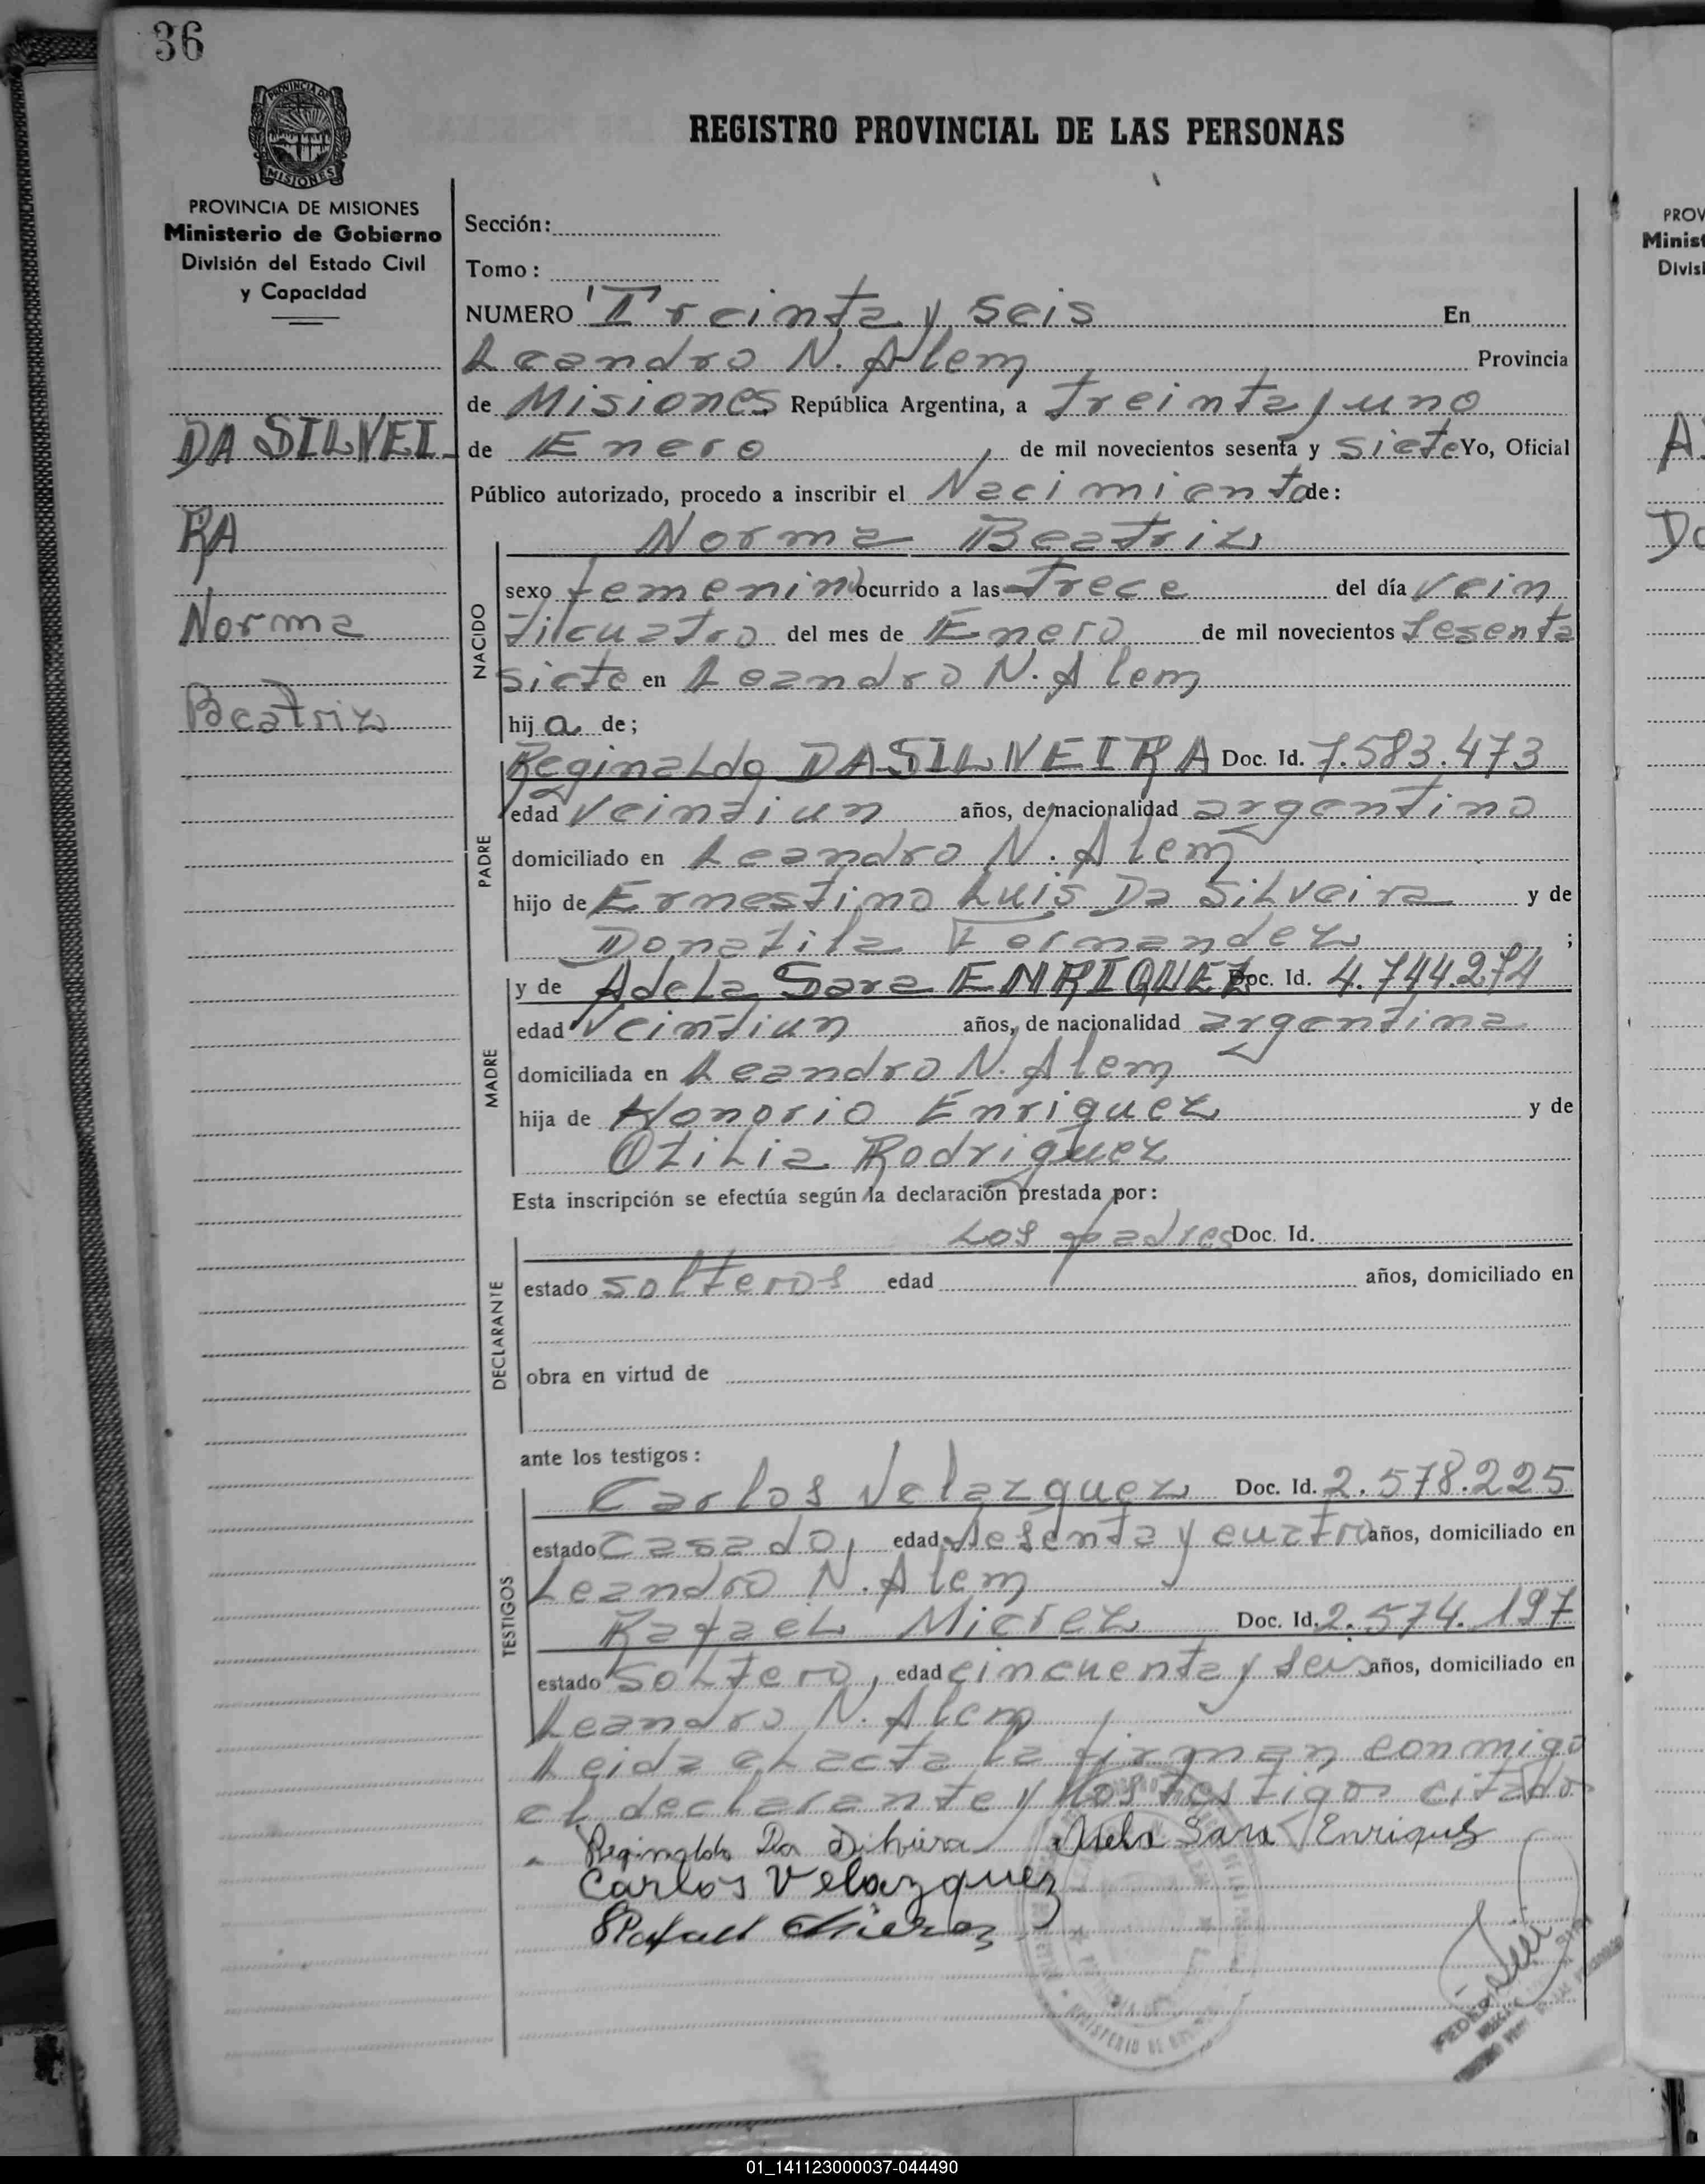 36
PROVINCIA DE MISIONES
REGISTRO PROVINCIAL DE LAS PERSONAS
PROVINCIA DE MISIONES
Ministerio de Gobierno
División del Estado Civil
y Capacidad
DA SILVEI_
RA
Norma
Beatriz
Sección:
Tomo:
NUMERO Treinta y seis En
Leandro N. Alem Provincia
de Misiones República Argentina, a treinta y uno
de Enero de mil novecientos sesenta y siete Yo, Oficial
Público autorizado, procedo a inscribir el Nacimiento de:
Norma Beatriz
NACIDO
sexo femenino ocurrido a las trece del día vein
ticuatro del mes de Enero de mil novecientos sesenta
siete en Leandro N. Alem
hij a de;
PADRE
Reginaldo DA SILVEIRA Doc. Id. 7.583.473
edad veintiun años, de nacionalidad argentino
domiciliado en Leandro N. Alem
hijo de Ernestino Luis Da Silveira y de
Donatila Fernandez ;
MADRE
y de Adela Sara ENRIQUEZ Doc. Id. 4.744.274
edad veintiun años, de nacionalidad argentina
domiciliada en Leandro N. Alem
hija de Honorio Enriquez y de
Otilia Rodriguez
Esta inscripción se efectúa según la declaración prestada por:
DECLARANTE
Los padres Doc. Id.
estado solteros edad años, domiciliado en
obra en virtud de
ante los testigos:
TESTIGOS
Carlos Velazquez Doc. Id. 2.578.225
estado casado, edad sesenta y cuatro años, domiciliado en
Leandro N. Alem
Rafael Mierez Doc. Id. 2.574.197
estado soltero, edad cincuenta y seis años, domiciliado en
Leandro N. Alem
Leida el acta la firman conmigo
el declarante y los testigos citados
Reginaldo Da Silveira Adela Sara Enriquez
Carlos Velazquez
Rafael Mierez
PROV
Minist
Divisi
01_141123000037-044490